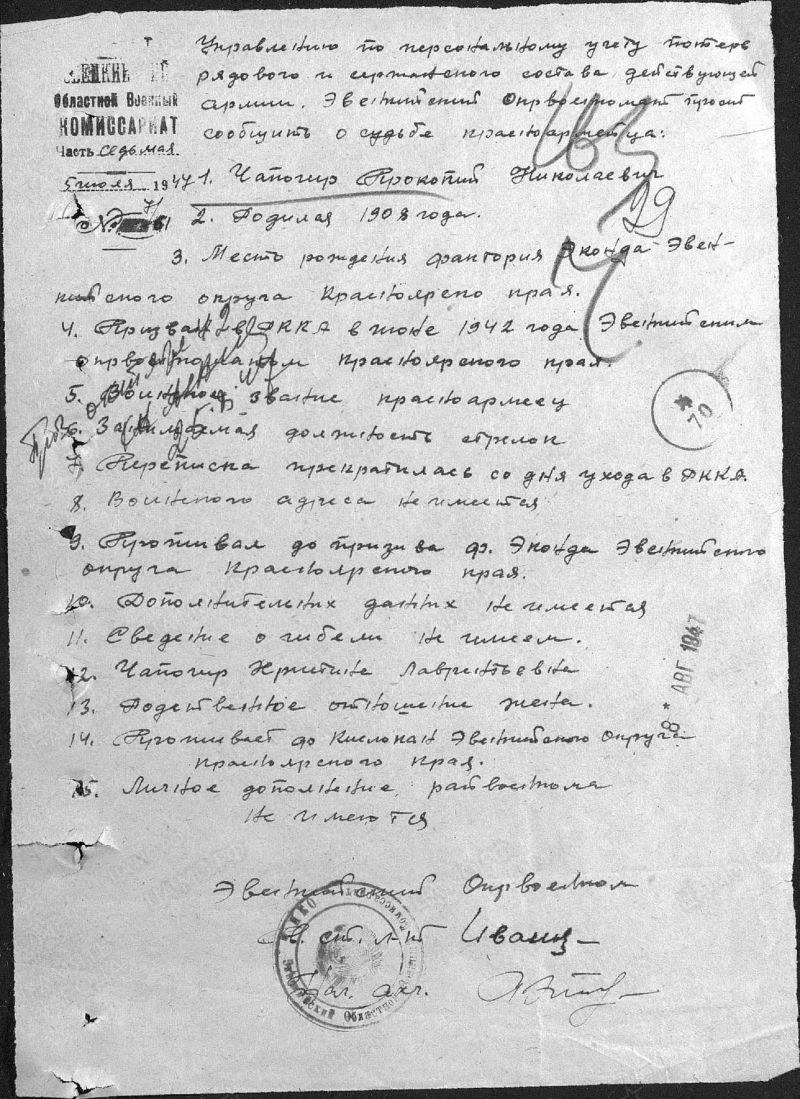 Управлению по персональному учету потерь
рядового и сержанского состава действующей
армии. Эвенкийский Окрвоенкомат просит
сообщить о судьбе красноармейца:
Областной Военный
КОМИССАРИАТ
Часть седьмая
5 июля 1947
1. Чапогир Прокопий Николаевич
29
2. Родился 1908 года.
3. Место рождения фактория Эконда Эвен-
кийского округа Красноярского края.
4. Призван в РККА в июне 1942 года Эвенкийским
окрвоенкоматом Красноярского края.
5. Воинское звание красноармеец
6. Занимаемая должность стрелок
70
7. Переписка прекратилась со дня ухода в РККА
8. Воинского адреса не имеется
9. Проживал до призыва ф. Эконда Эвенкийского
округа Красноярского края.
10. Дополнительных данных не имеется
11. Сведение о гибели не имеем.
8 * АВГ 1947
12. Чапогир Кристина Лаврентьевна
13. Родственное отношение жена.
14. Проживает Эвенкийского Округа
Красноярского края.
15. Личное дополнение райвоенкома
не имеются
Эвенкийский Окрвоенком
ст. л-нт Иванц